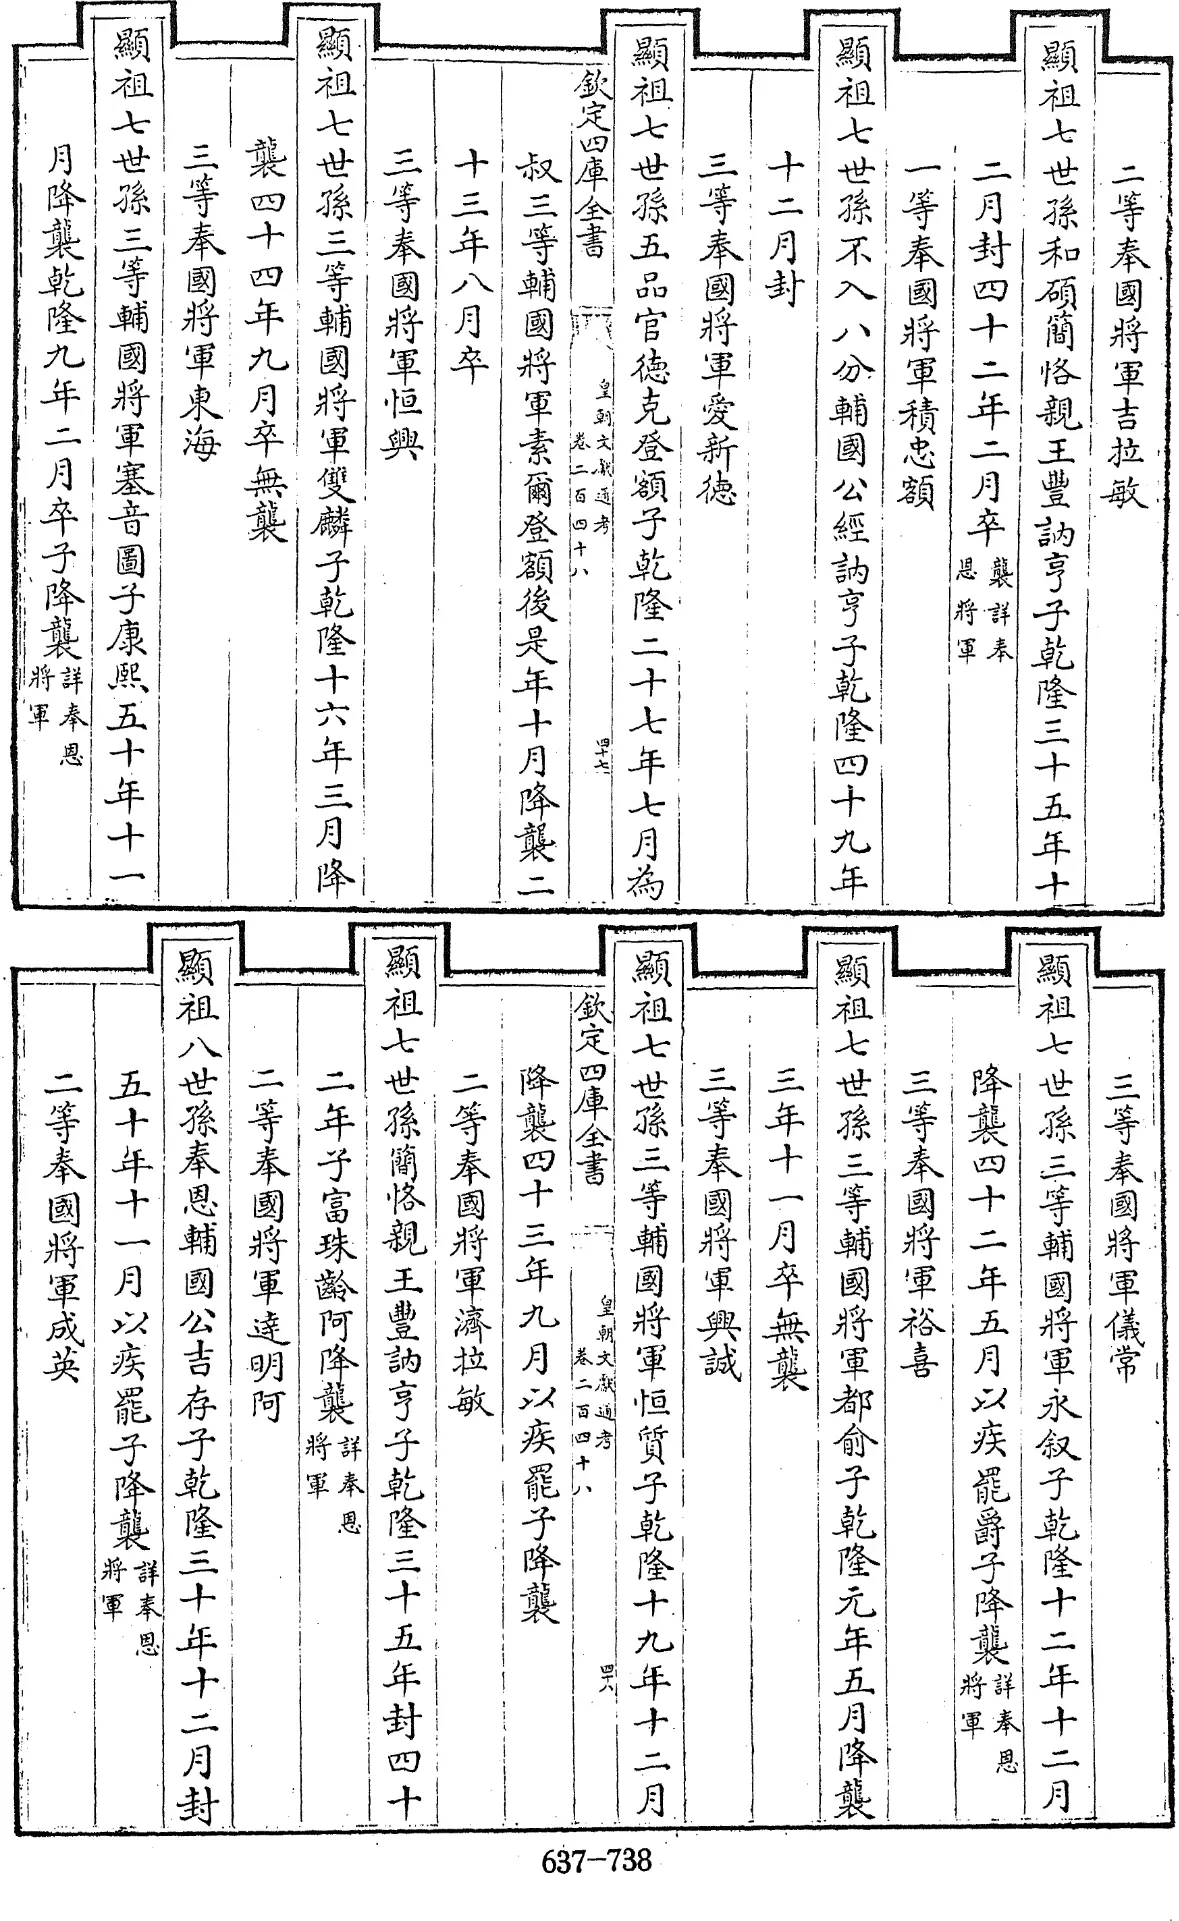 二等奉國將軍吉拉敏
顯祖七世孫和碩簡恪親王豐訥亨子乾隆三十五年十
二月封四十二年二月卒襲詳奉恩將軍
一等奉國將軍積忠額
顯祖七世孫不入八分輔國公經訥亨子乾隆四十九年
十二月封
三等奉國將軍愛新德
顯祖七世孫五品官德克登額子乾隆二十七年七月為
欽定四庫全書
皇朝文獻通考
卷二百四十八
四十七
叔三等輔國將軍素爾登額後是年十月降襲二
十三年八月卒
三等奉國將軍恒興
顯祖七世孫三等輔國將軍雙麟子乾隆十六年三月降
襲四十四年九月卒無襲
三等奉國將軍東海
顯祖七世孫三等輔國將軍塞音圖子康熙五十年十一
月降襲乾隆九年二月卒子降襲詳奉恩將軍
三等奉國將軍儀常
顯祖七世孫三等輔國將軍永叙子乾隆十二年十二月
降襲四十二年五月以疾罷爵子降襲詳奉恩將軍
三等奉國將軍裕喜
顯祖七世孫三等輔國將軍都俞子乾隆元年五月降襲
三年十一月卒無襲
三等奉國將軍興誠
顯祖七世孫三等輔國將軍恒質子乾隆十九年十二月
欽定四庫全書
皇朝文獻通考
卷二百四十八
四十八
降襲四十三年九月以疾罷子降襲
二等奉國將軍濟拉敏
顯祖七世孫簡恪親王豐訥亨子乾隆三十五年封四十
二年子富珠齡阿降襲詳奉恩將軍
二等奉國將軍達明阿
顯祖八世孫奉恩輔國公吉存子乾隆三十年十二月封
五十年十一月以疾罷子降襲詳奉恩將軍
二等奉國將軍成英
637-738